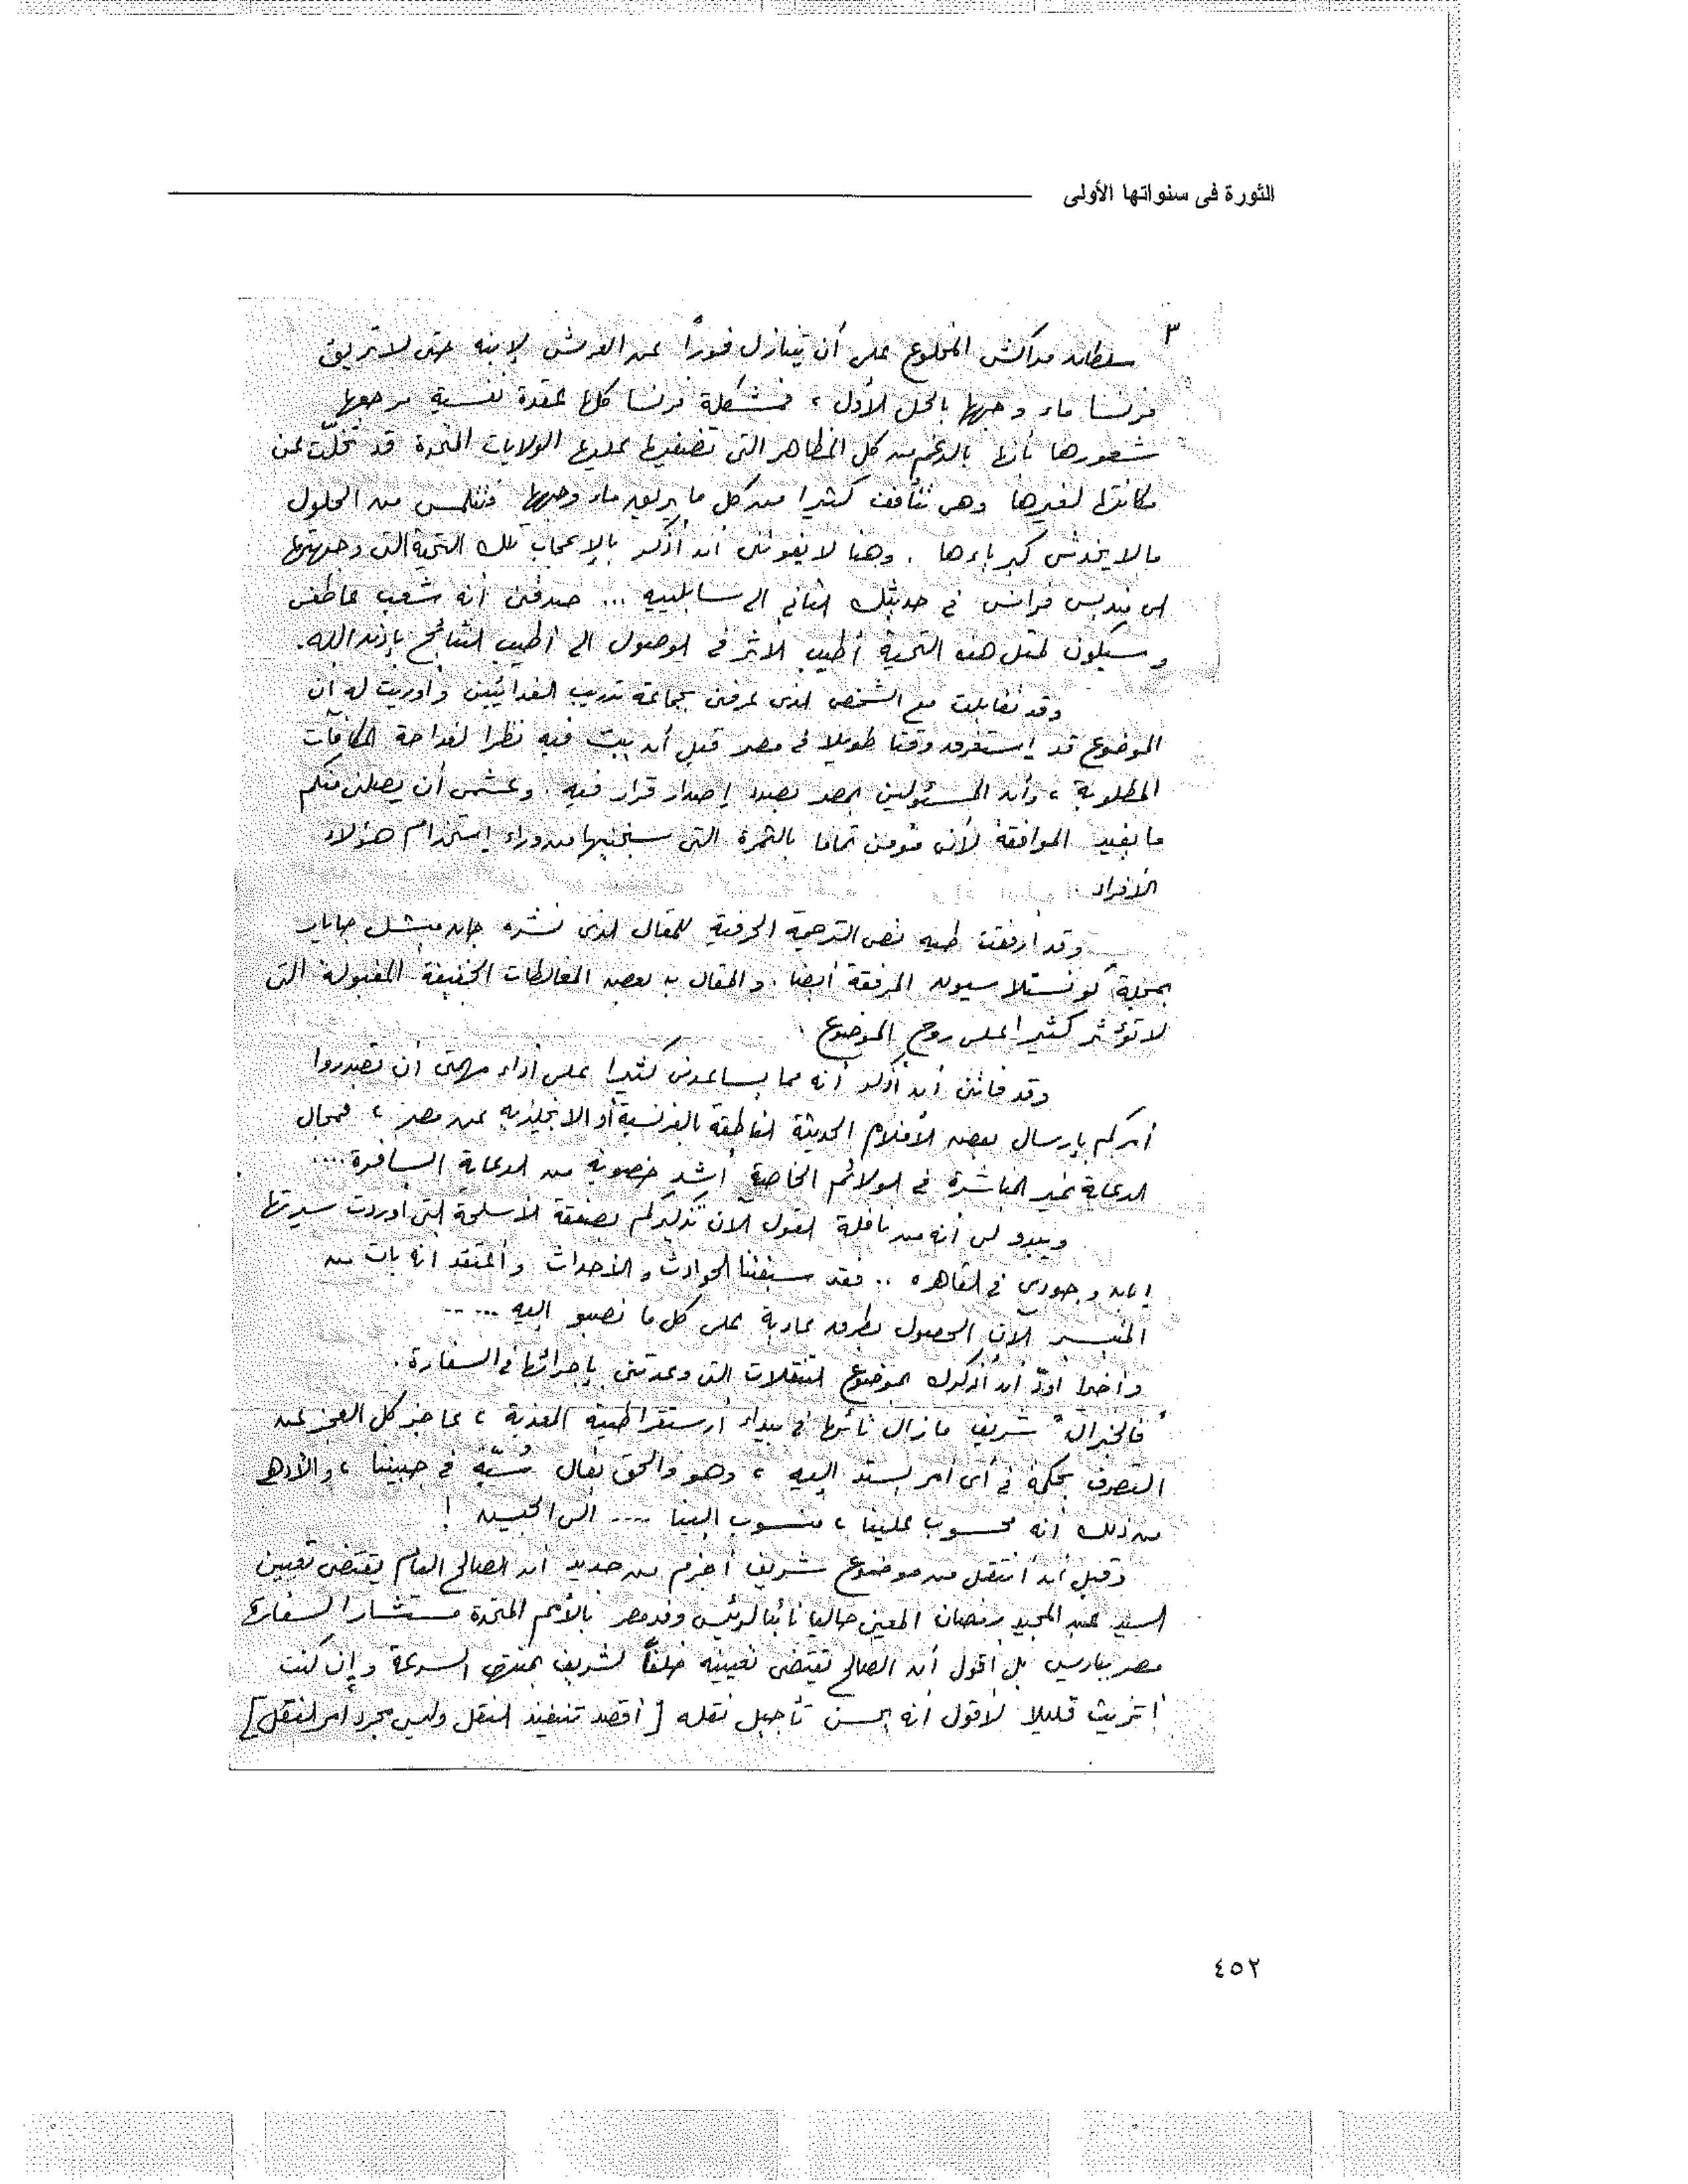 الثورة فى سنواتها الأولى
٣
سلطان مراكش المخلوع على أن يتنازل فوراً عن العرش لإبنه حتى لا تريق
فرنسا ماء وجهها بالحل الأول ، فمشكلة فرنسا كلها عقدة نفسية مرجعها
شعورها بأنها بالرغم من كل المظاهر التى تضفيها عليها الولايات المتحدة قد تخلّت عن
مكانتها لغيرها وهى تتأفف كثيرا من كل ما يريق ماء وجهها فتتلمس من الحلول
مالا يخدش كبرياءها . وهنا لا يفوتنى أن أذكر بالإعجاب تلك التحية التى وجهتها
الى منديس فرانس فى حديثك الثانى الى سابلييه ... صدقنى أنه شعب عاطفى
وسيكون لمثل هذه التحية أطيب الاثر فى الوصول الى أطيب النتائج بإذن الله .
وقد تقابلت مع الشخص الذى عرفنى بجماعة تدريب الفدائيين وأوريت له أن
الموضوع قد إستغرق وقتا طويلا فى مصر قبل أن يبت فيه نظرا لفداحة المكافآت
المطلوبة ، وأن المسئولين بمصر بصدد إصدار قرار فيه . وعشمى أن يصلنى منكم
ما يفيد الموافقة لأنى مؤمن تماما بالثمرة التى سنجنيها من وراء إستخدام هؤلاء
الأفراد
وقد أرفقت طيه نص الترجمة الحرفية للمقال الذى نشره جان ميشل جايار
بمجلة كونستلاسيون المرفقة أيضا . والمقال به بعض المغالطات الخفيفة المقبولة التى
لا تؤثر كثيرا على روح الموضوع .
وقد فاتنى أن أذكر أنه مما يساعدنى كثيرا على أداء مهمتى أن تصدروا
أمركم بإرسال بعض الأفلام الحديثة الناطقة بالفرنسية أو الانجليزيه عن مصر ، فمجال
الدعاية غير المباشرة فى الولائم الخاصة أشد خصوبة من الدعاية السافرة ....
ويبدو لى أنه من نافلة القول الآن تذكيركم بصفقة الأسلحة التى أوردت سيرتها
إبان وجودى فى القاهره .. فقد سبقتنا الحوادث والأحداث وأعتقد أنه بات من
المتيسر الآن الحصول بطرق عادية على كل ما نصبو اليه .....
وأخيرا أودّ أن أذكرك بموضوع التنقلات التى وعدتنى بإجرائها فى السفارة .
"فالجنرال" شريف مازال تائها فى بيداء أرستقراطيته المعذبة ، عاجز كل العجز عن
التصرف بحكمة فى أى أمر يسند إليه ، وهو والحق يقال سُبّة فى جبيننا ، والأدهى
من ذلك أنه محسوب علينا ، منسوب الينا .... الى الجيش !
وقبل أن أنتقل من موضوع شريف أجزم من جديد أن الصالح العام يقتضى تعيين
السيد عبد المجيد رمضان المعين حاليا نائبا لرئيس وفد مصر بالأمم المتحدة مستشارا لسفارة
مصر بباريس بل أقول أن الصالح يقتضى تعيينه خلفاً لشريف بمنتهى السرعة وإن كنت
أتريث قليلا لأقول أنه يحسن تأجيل نقله [أقصد تنفيذ النقل وليس مجرد أمر النقل]
٤٥٢